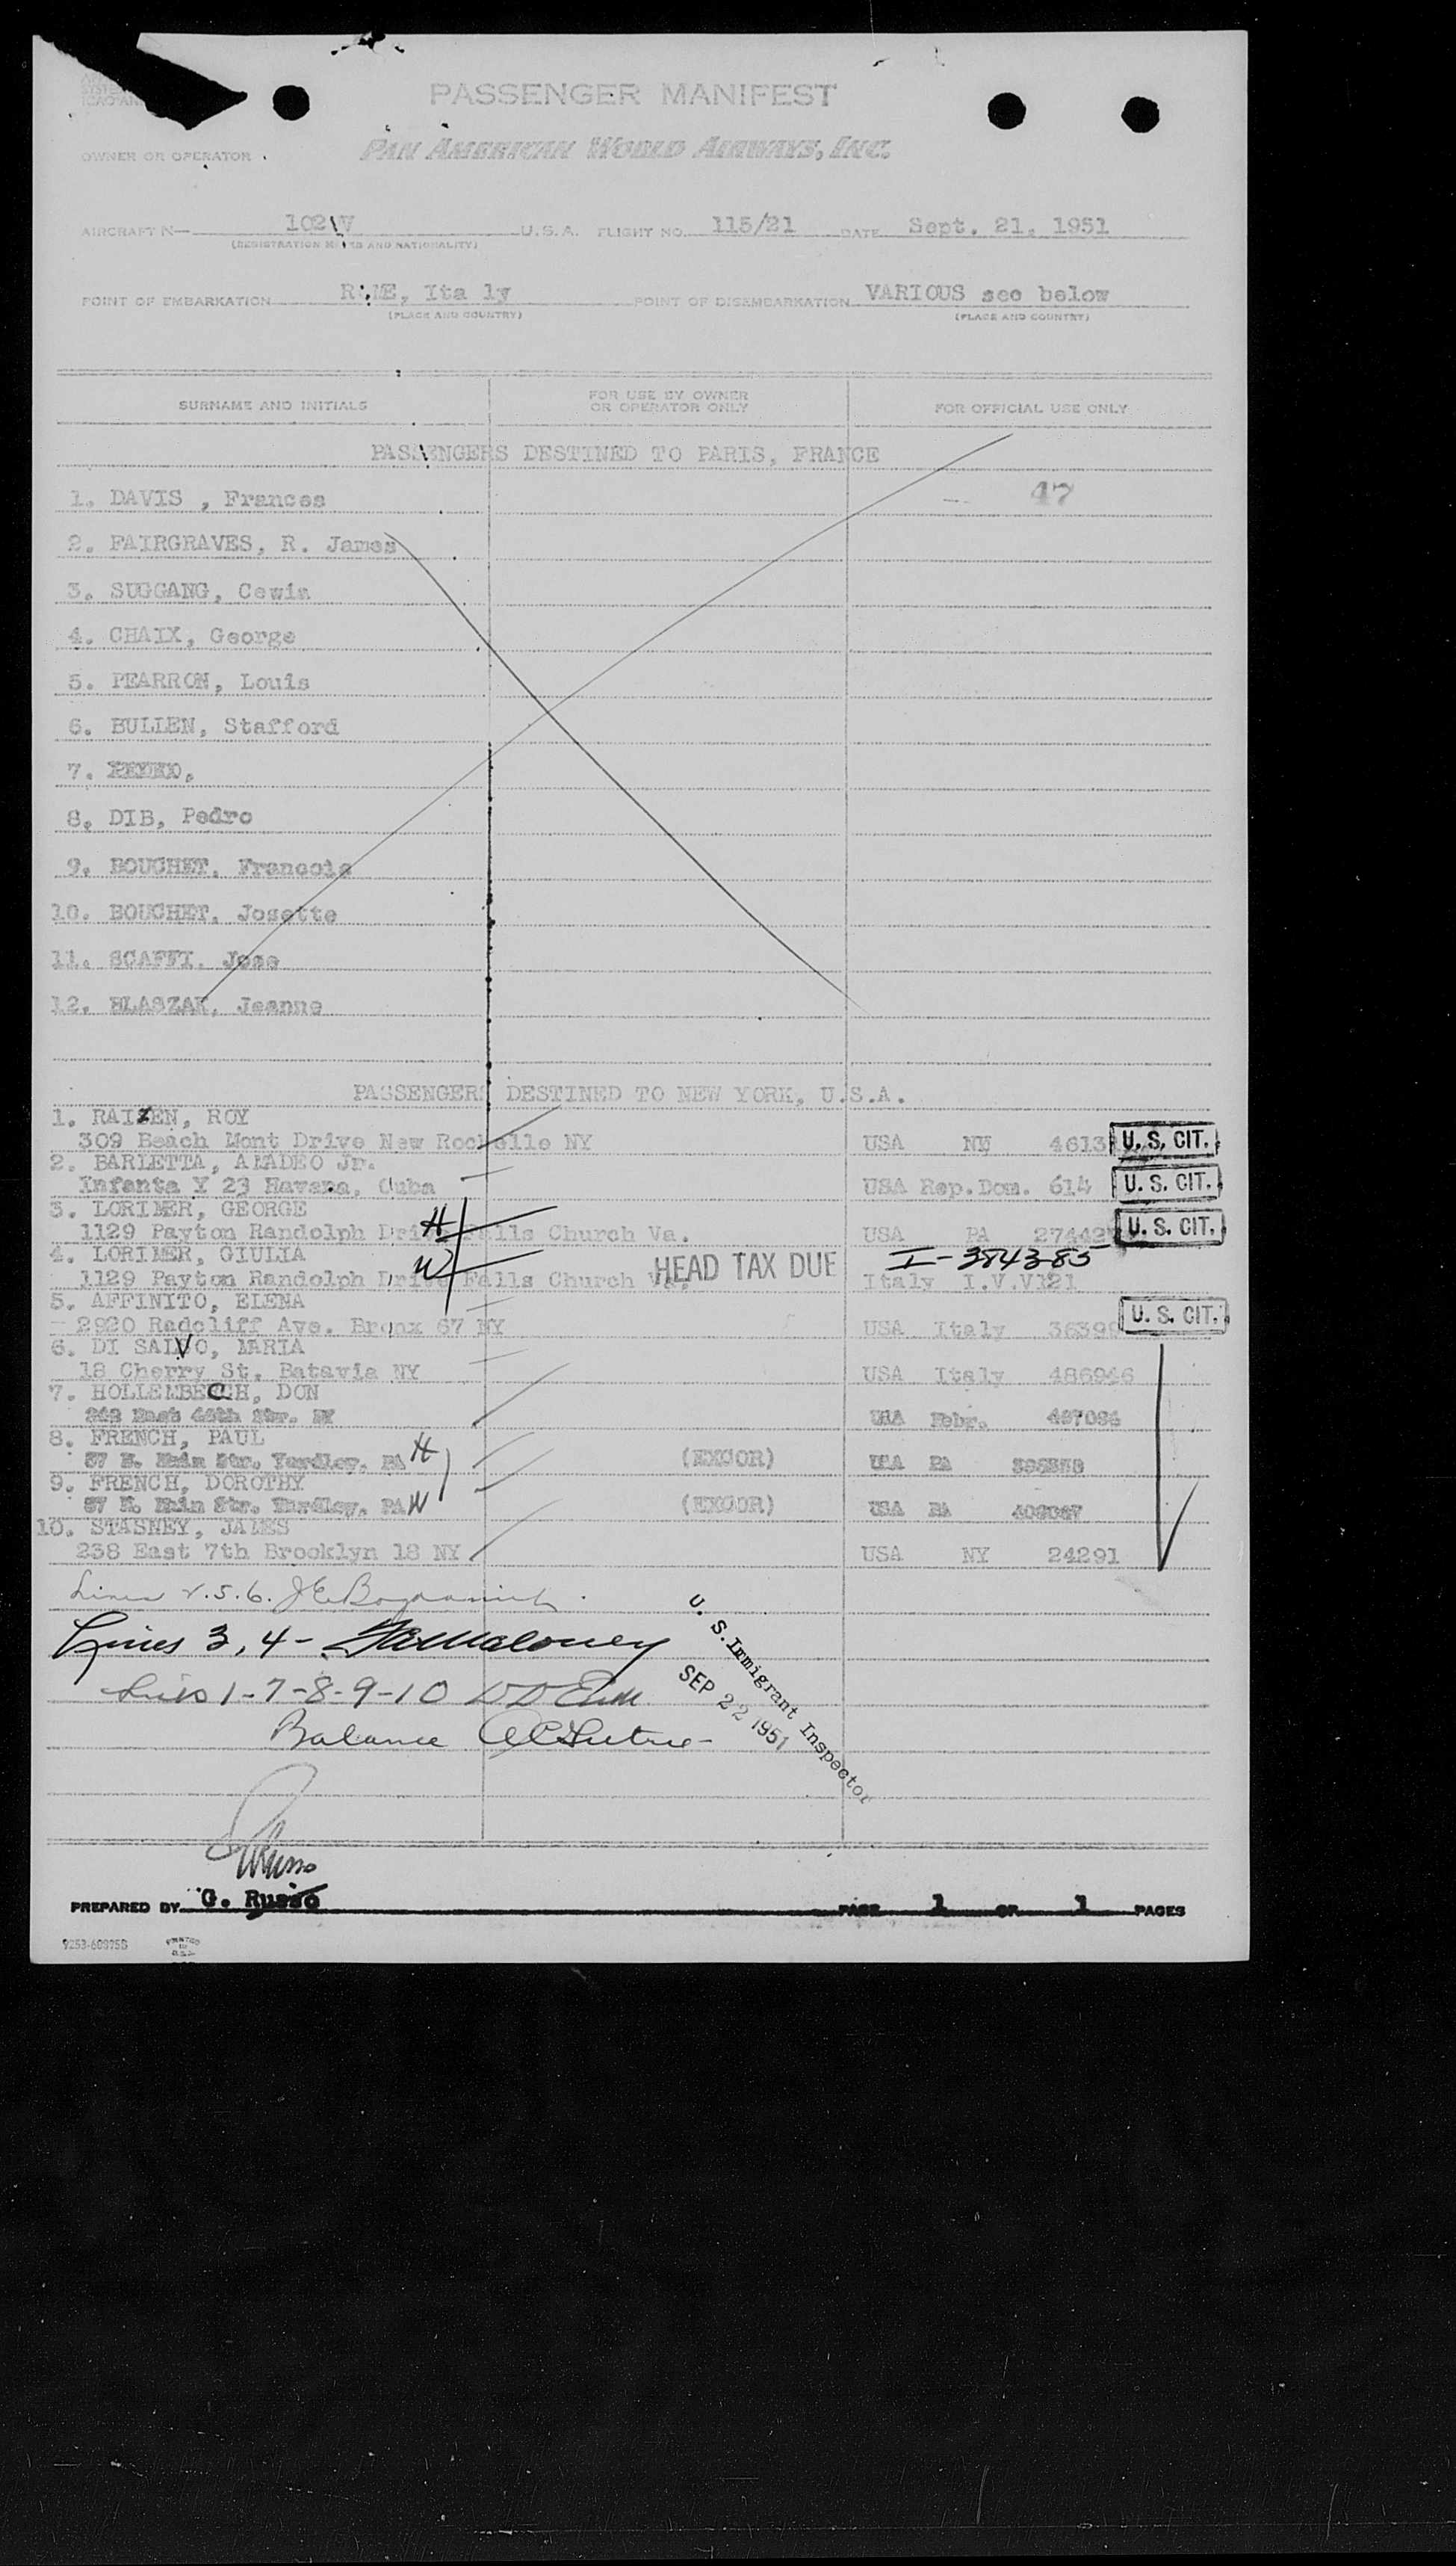 PASSENGER MANIFEST
OWNER OR OPERATOR PAN AMERICAN WORLD AIRWAYS, INC.
AIRCRAFT N— 102 V U.S.A. FLIGHT NO. 115/21 DATE Sept. 21, 1951
(REGISTRATION MARKS AND NATIONALITY)
POINT OF EMBARKATION ROME, Ita ly POINT OF DISEMBARKATION VARIOUS see below
(PLACE AND COUNTRY) (PLACE AND COUNTRY)
SURNAME AND INITIALS FOR USE BY OWNER OR OPERATOR ONLY FOR OFFICIAL USE ONLY
PASSENGERS DESTINED TO PARIS, FRANCE
1. DAVIS , Frances 47
2. FAIRGRAVES, R. James
3. SUGGANG, Cewin
4. CHAIX, George
5. PEARRON, Louis
6. BULLEN, Stafford
7.
8. DIB, Pedro
9. BOUCHET, Francois
10. BOUCHET, Josette
11. SCAFFI, Jose
12. BLASZAK, Jeanne
PASSENGERS DESTINED TO NEW YORK, U.S.A.
1. RAIZEN, ROY
309 Beach Mont Drive New Rochelle NY USA NY 4613 U. S. CIT.
2. BARLETTA, AMADEO Jr.
Infanta Y 23 Havana, Cuba USA Rep.Dom. 614 U. S. CIT.
3. LORIMER, GEORGE
1129 Payton Randolph Drive Falls Church Va. H USA PA 27442 U. S. CIT.
4. LORIMER, GIULIA I-384385
1129 Payton Randolph Drive Falls Church Va. W HEAD TAX DUE Italy I.V.V121
5. AFFINITO, ELENA
2920 Radcliff Ave. Bronx 67 NY USA Italy 36396 U. S. CIT.
6. DI SALVO, MARIA
18 Cherry St. Batavia NY USA Italy 486946
7. HOLLEMBECH, DON
East 48th Str. NY USA Febr. 487086
8. FRENCH, PAUL H
57 S. Main Str. Yardley, PA (EXCOR) USA PA
9. FRENCH, DOROTHY
57 S. Main Str. Yardley, PA W (EXCOR) USA PA
10. STASNEY, JAMES
238 East 7th Brooklyn 18 NY USA NY 24291
Lines 2.5.6.
Lines 3, 4 - Maloney
Lines 1-7-8-9-10
Balance
U. S. Immigrant Inspector
SEP 22 1951
PREPARED BY G. Russo PAGE 1 OF 1 PAGES
9253-609758 PRINTED IN U.S.A.